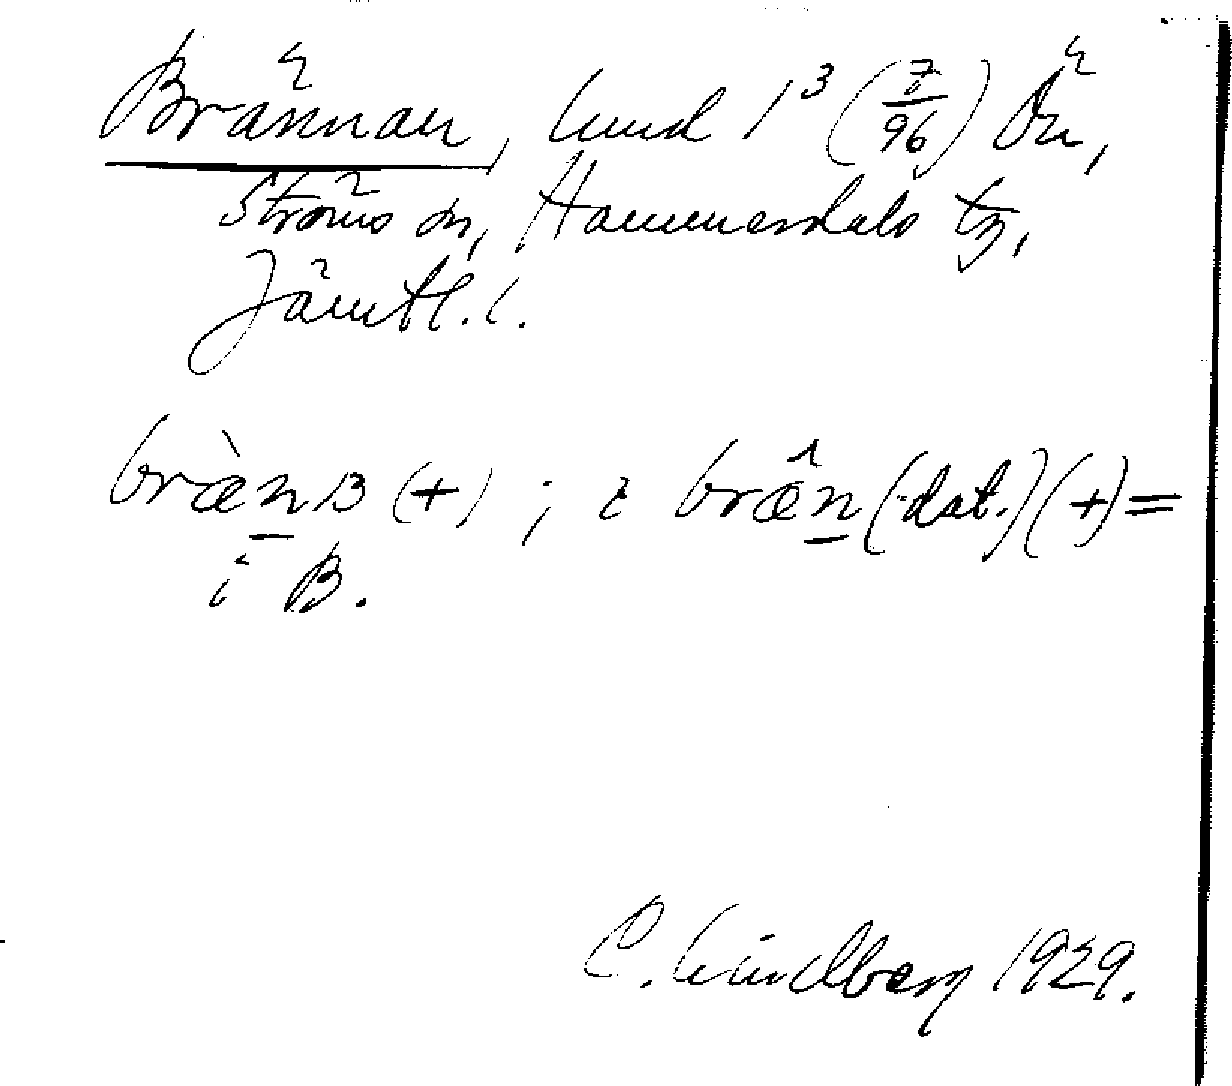 Brännan, lund 1³ (7/96) Ön,
Ströms sn, Hammerdals tg,
Jämtl. l.
bræ̀n̲ɜ (+) ; i bræ̂n̲ (dat.) (+) =
i B.
C. Lindberg 1929.